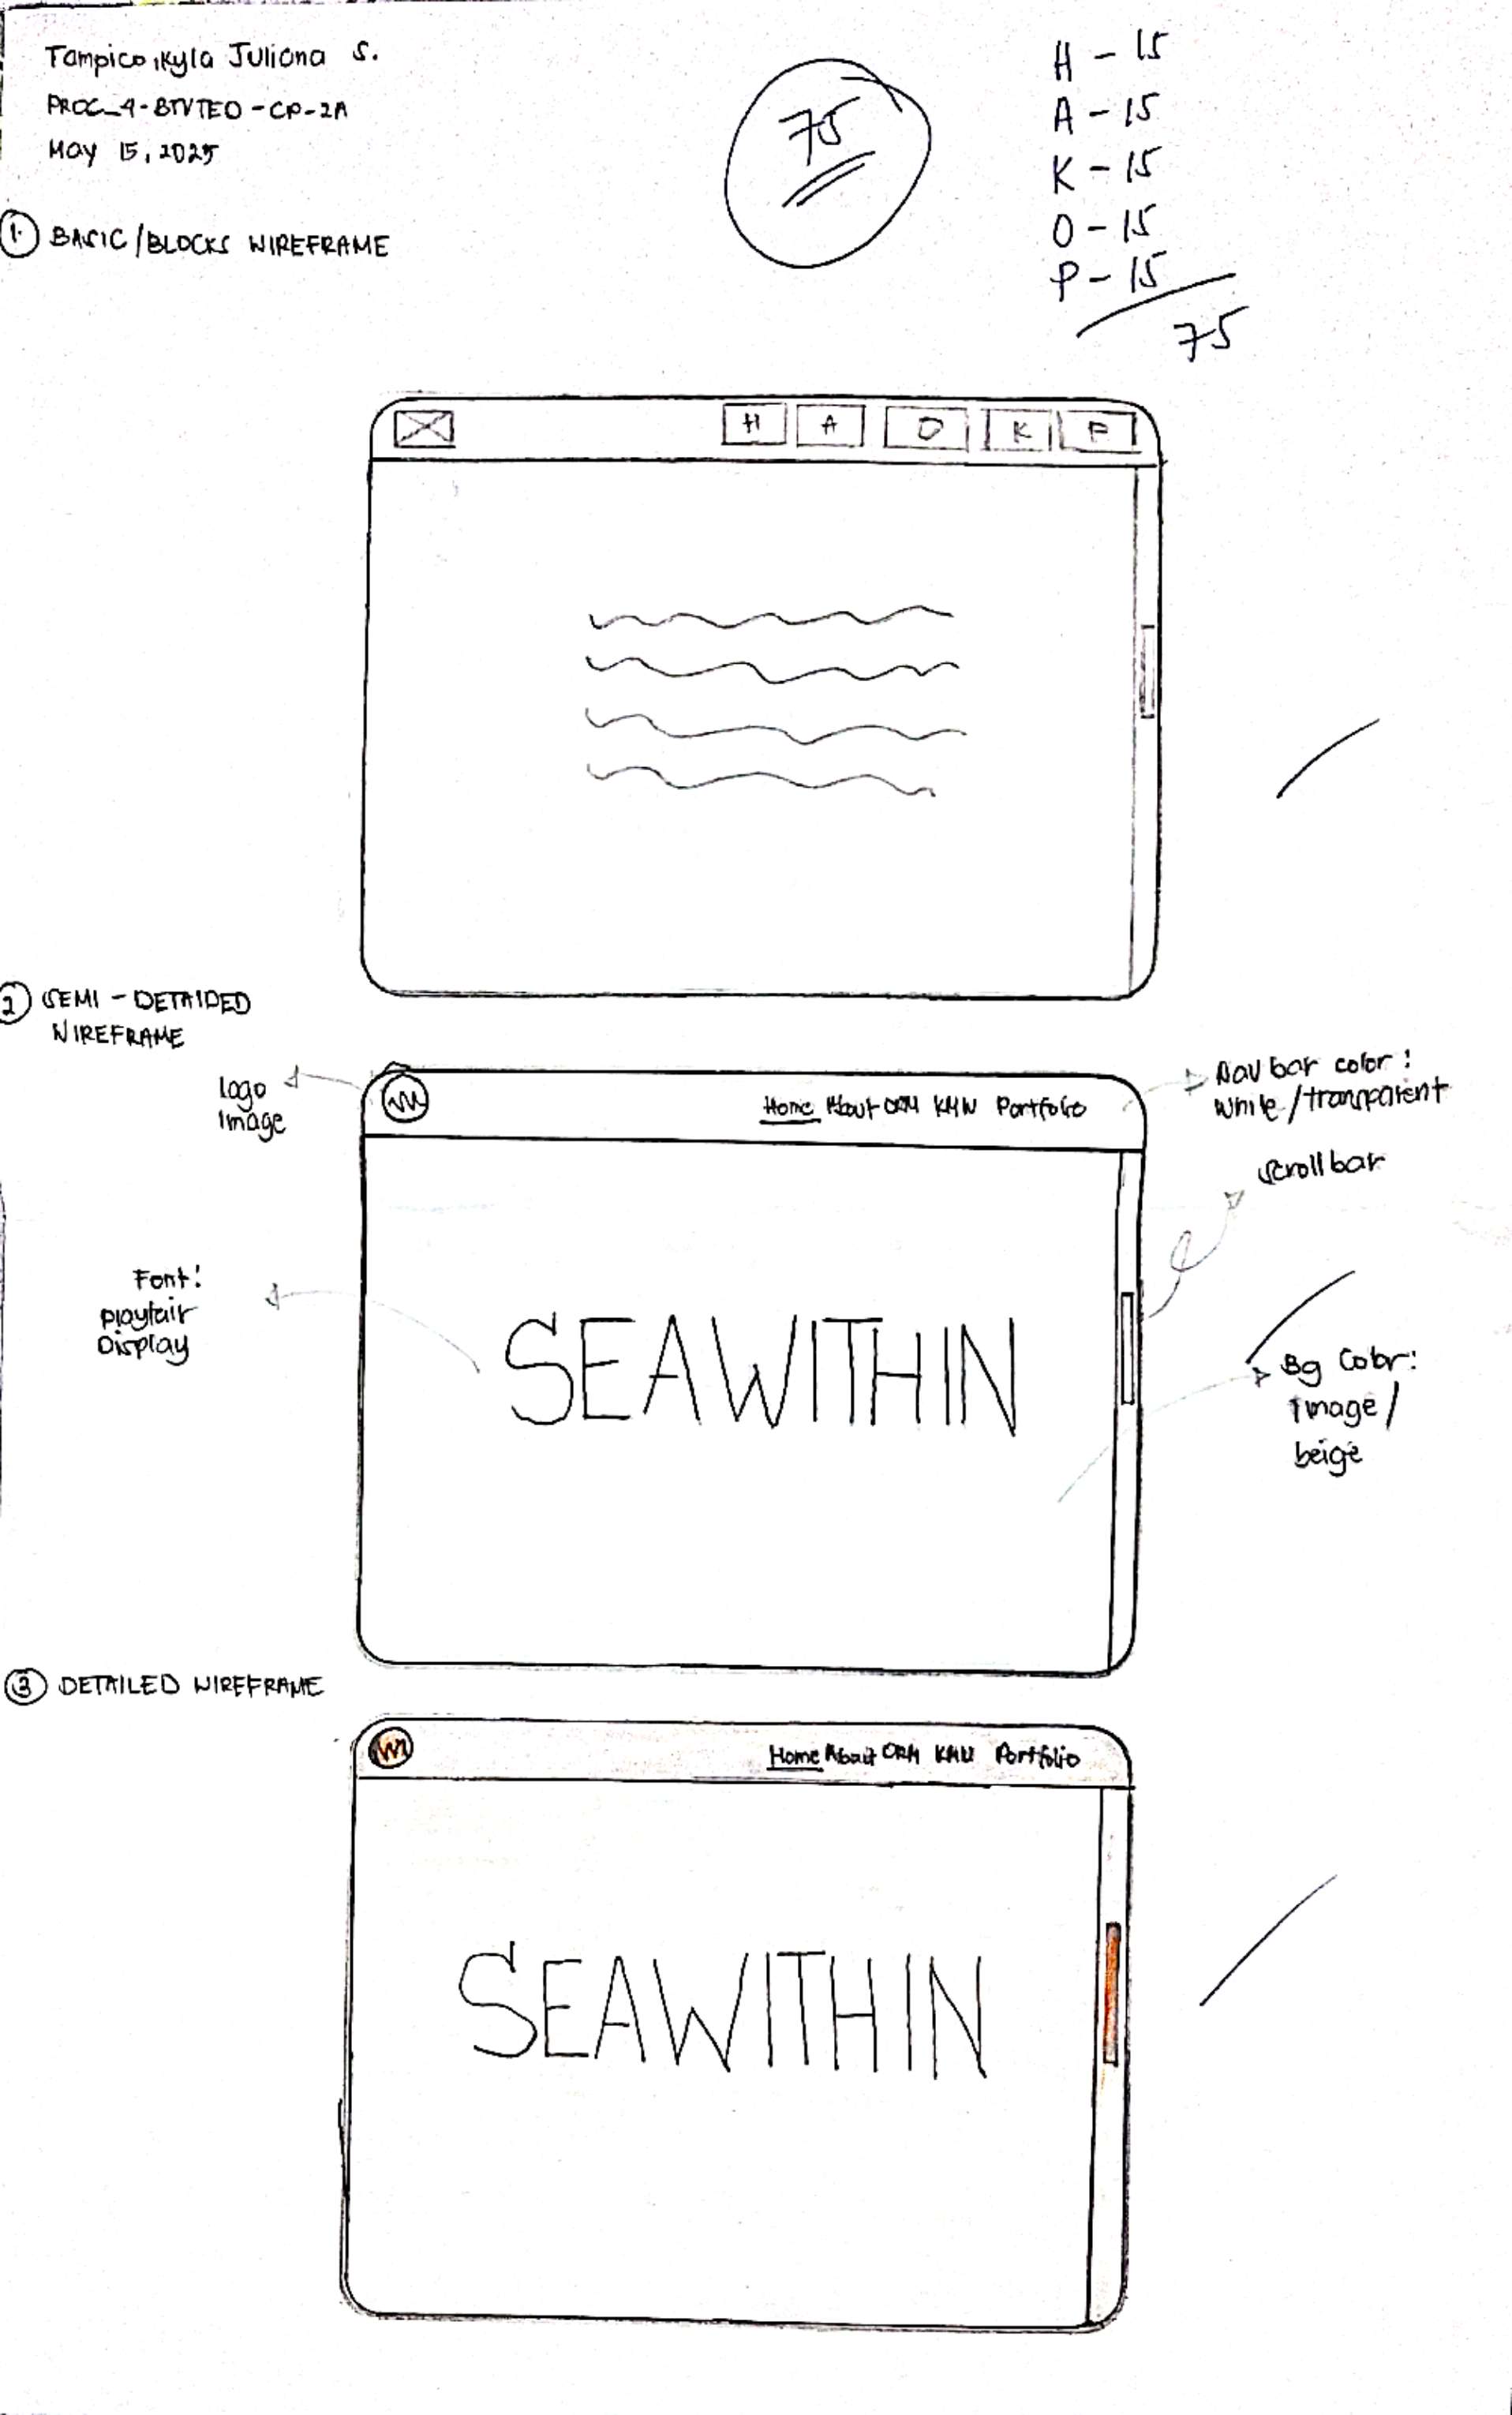 Tampico, Kyla Juliana S.
PROC_4-BTVTED-CP-2A
May 15, 2025
75
H - 15
A - 15
K - 15
O - 15
P - 15
75
1. BASIC/BLOCKS WIREFRAME
H A O K P
2 SEMI - DETAIDED
WIREFRAME
Logo
Image
Home About ORM KMU Portfolio
Nav bar color:
white/transparent
Scroll bar
Font:
Playfair
Display
SEAWITHIN
Bg Color:
Image/
beige
3 DETAILED WIREFRAME
Home About ORM KMU Portfolio
SEAWITHIN